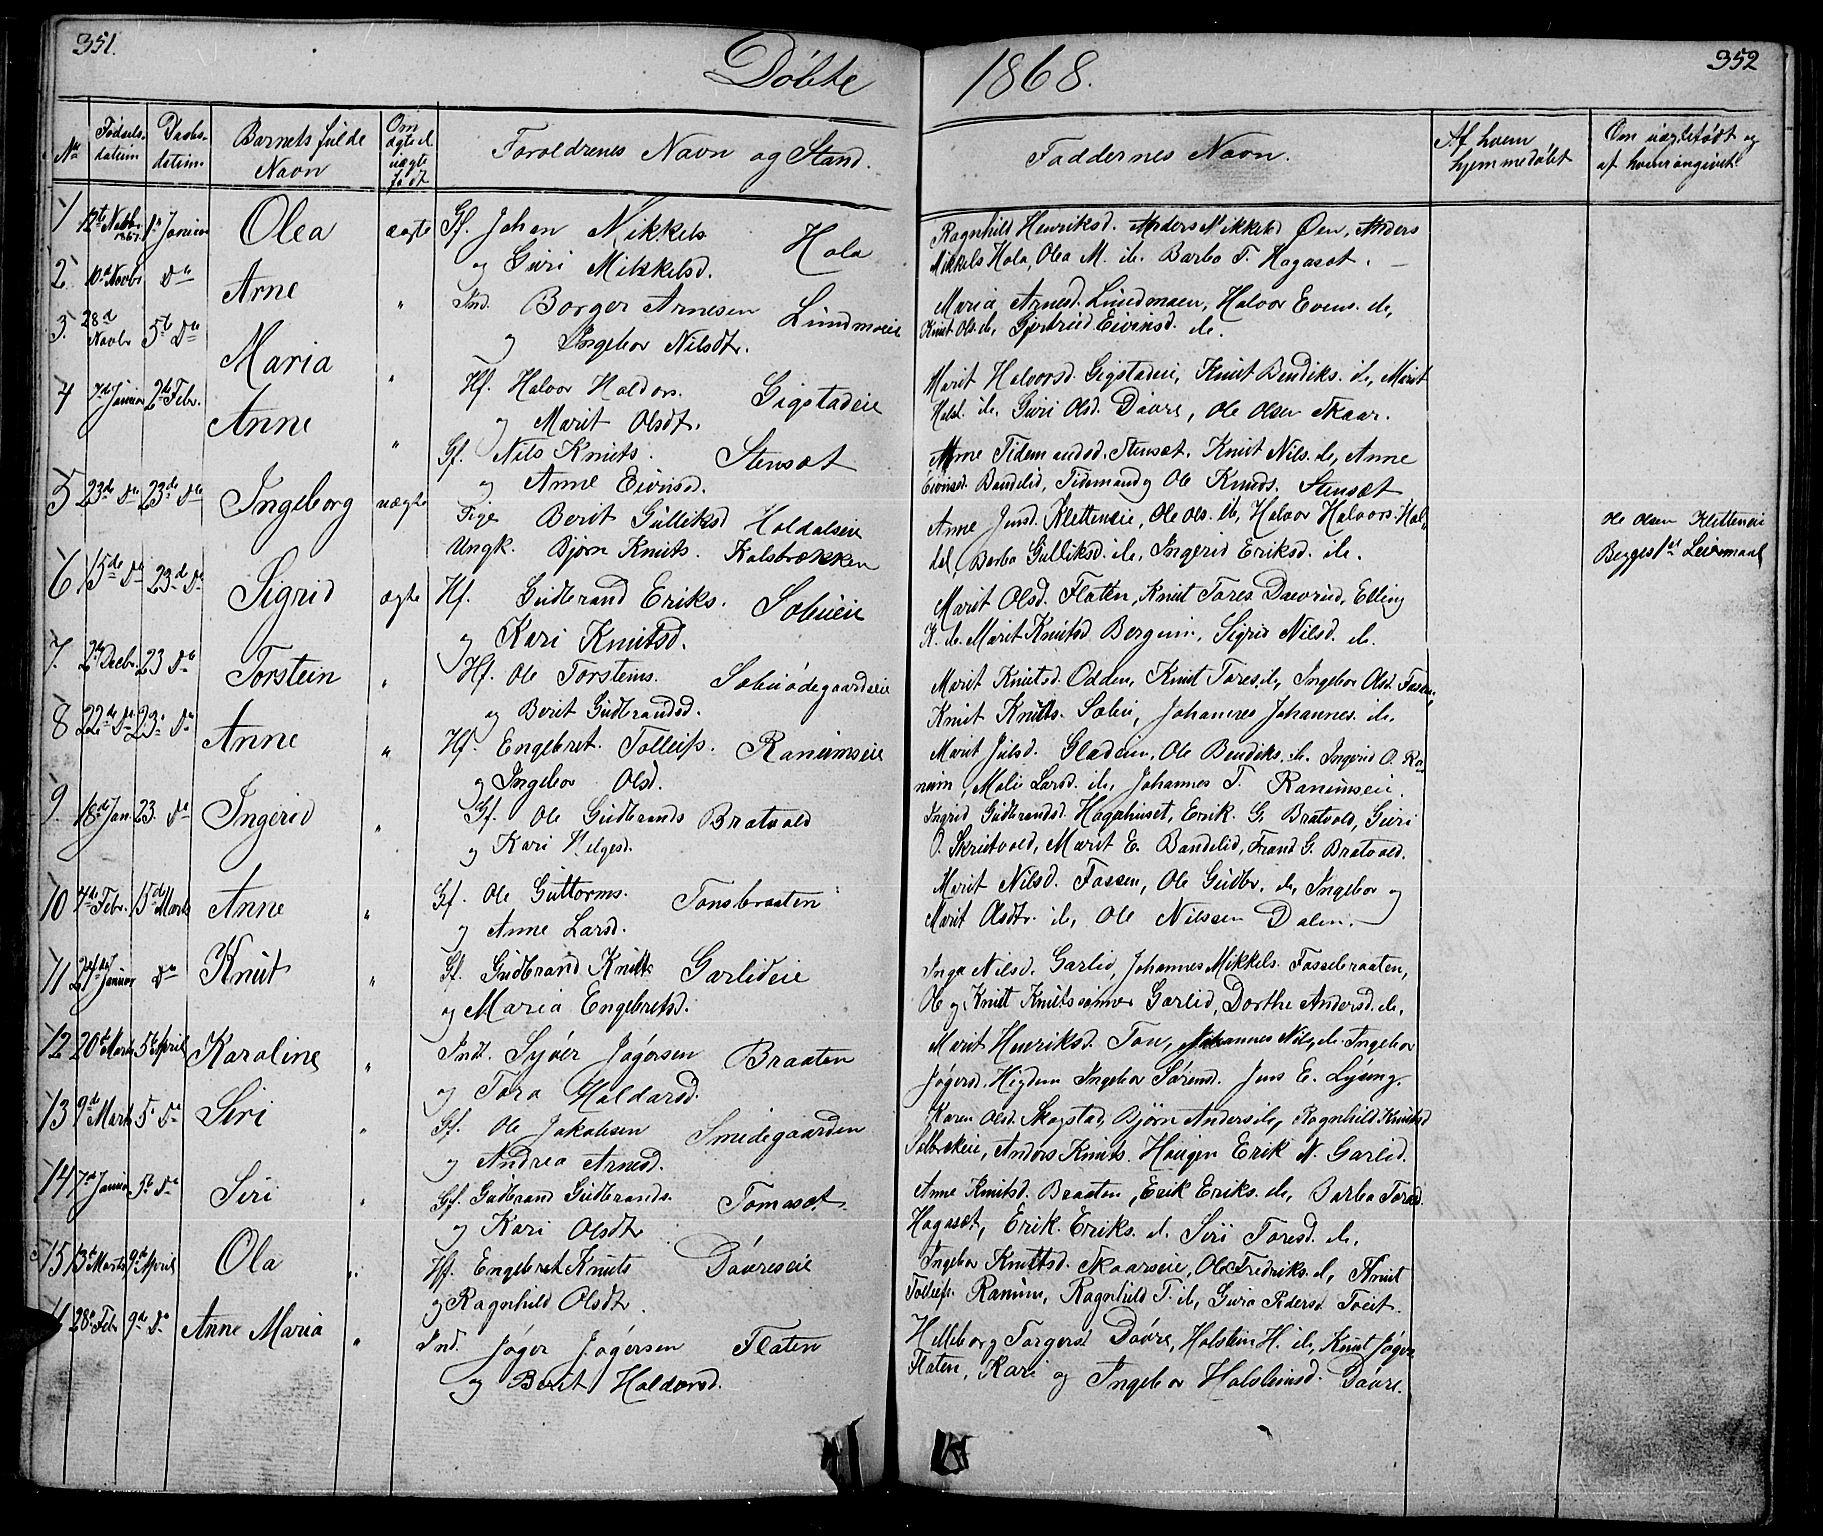 351.
Døbte
1868.
352
No
Fødsels-
datum
Daabs-
datum
Barnets fulde
Navn
Om
ægte el.
uægte
født
Forældrenes Navn og Stand.
Faddernes Navn.
Af hvem
hjemmedøbt
Om uægtefødt og
af hvem angivet
1 12te Novbr. 1867. 1ste Januar Olea ægte Gf. Johan Nikkels Hola
og Guri Mikkelsd.
Ragnhild Henriksd. Anders Mikkels Øen, Anders
Mikkels Hola, Olea M. ib. Barbo T. Hagaset.
2 10de Novbr do Arne " Ind. Borger Arnesen Lundmoeie
og Ingebor Nilsdtr.
Maria Arnesd. Lundmoen, Halvor Evens. ib,
Knut Ols. ib, Gjertrud Eivinsd. ib.
3. 28de Novbr 5te do Maria " Hf. Halvor Haldors. Gigstadeie
og Marit Olsdtr.
Marit Halvorsd. Gigstadeie, Knut Bendiks. ib, Marit
Halst. ib. Guri Olsd. Davre, Ole Olsen Skaar.
4 7de Januar 2de Febr. Anne " Gf. Nils Knuts. Stensæt
og Anne Eivinsd.
Anne Tidemandsd. Stensæt. Knut Nils. ib, Anne
Eivinsd. Bandelid, Tidemand og Ole Knuds. Stensæt
5 23de do 23de do Ingeborg uægte Pige Berit Gulliksd Haldalseie
Ungk. Bjørn Knuts. Kalsbrækken
Anne Jensd. Kletteneie, Ole Ols. ib, Halvor Halvors. Hal-
dal, Barbo Gulliksd. ib, Ingerid Eriksd. ib.
Ole Olsen Kletteneie
Begges 1ste Leiermaal
6 15de do 23de do Sigrid ægte Hf. Gudbrand Eriks. Søbueie
og Kari Knutsd.
Marit Olsd. Flaten, Knut Tores Davrud, Elling
K. ib. Marit Knutsd Bergum, Sigrid Nilsd. ib.
7. Decbr. 23 do Torstein " Hf. Ole Torsteins. Søbuødegaardseie
og Berit Gudbrandsd.
Marit Knutsd. Odden, Knut Tores. ib, Ingebor Olsd. Fossen,
Knut Knuts. Søbu, Johannes Johannes. ib.
8 22de do 23. do Anne " Hf. Engebret. Tollefs. Ranumseie
og Ingebor Olsd.
Marit Julsd. Gladeim, Ole Bendiks. ib. Ingerid O. Ra-
num, Mali Larsd. ib, Johannes T. Ranumseie.
9. 18de Jan. 23. do Ingerid " Gf. Ole Gudbrands Bratvold
og Kari Helgesd.
Ingrid Gudbrandsd. Hagahuset, Erik. G. Bratvold, Guri
O. Skrutvold, Marit E. Bandelid, Frand G. Bratvold.
10 7de Febr. 15de Marts Anne " Gf. Ole Guttorms. Tonsbraaten
og Anne Larsd.
Marit Nilsd. Fossen, Ole Gudbr. ib, Ingebor og
Marit Olsdtr. ib, Ole Nilssen Dalen.
11 Januar do Knut " Gf. Gudbrand Knuts Garlideie
og Maria Engebretsd.
Inga Nilsd. Garlid, Johannes Mikkels. Fossebraaten,
Ole og Knut Knutssønner Garlid, Dorthe Andersd. ib,
12 20de Marts 5te April Karoline " Ind. Syver Jøgersen Braaten
og Tora Haldorsd.
Marit Henriksd. Ton, Johannes Nils. ib. Ingebor
Jøgersd. Høgden Ingebor Sørensd. Jens E. Lyseng.
13 9de Marts 5. do Siri " Gf. Ole Jakobsen Smidegaarden
og Andrea Arnesd.
Karen Olsd. Skogstad, Bjørn Anders. ib, Ragnhild Knutsd
Anders Knuts. Haugen Erik N. Garlid.
14 7de Januar 5te do Siri " Gf. Gudbrand Gudbrands. Tomasæt
og Kari Olsdtr
Anne Knutsd. Braaten, Erik Eriks. ib, Barbo Toresd.
Hagaset, Erik. Eriks. ib. Siri Toresd. ib.
15 13de Marts 9de April Ola " Hf. Engebret Knuts Davreseie
og Ragnhild Olsdtr.
Ingebor Knutsd. Skaarseie, Ole Fredriks. ib, Knut
Tollefs. Ranum, Ragnhild T. ib, Guro Pedersd Tveit.
28de Febr 9de do Anne Maria " Ind. Jøger Jøgersen Flaten
og Berit Haldorsd.
Helleborg Torgersd Davre, Holstein H. ib, Knut Jøger.
Flaten, Kari og Ingebor Holsteinsd. Davre.